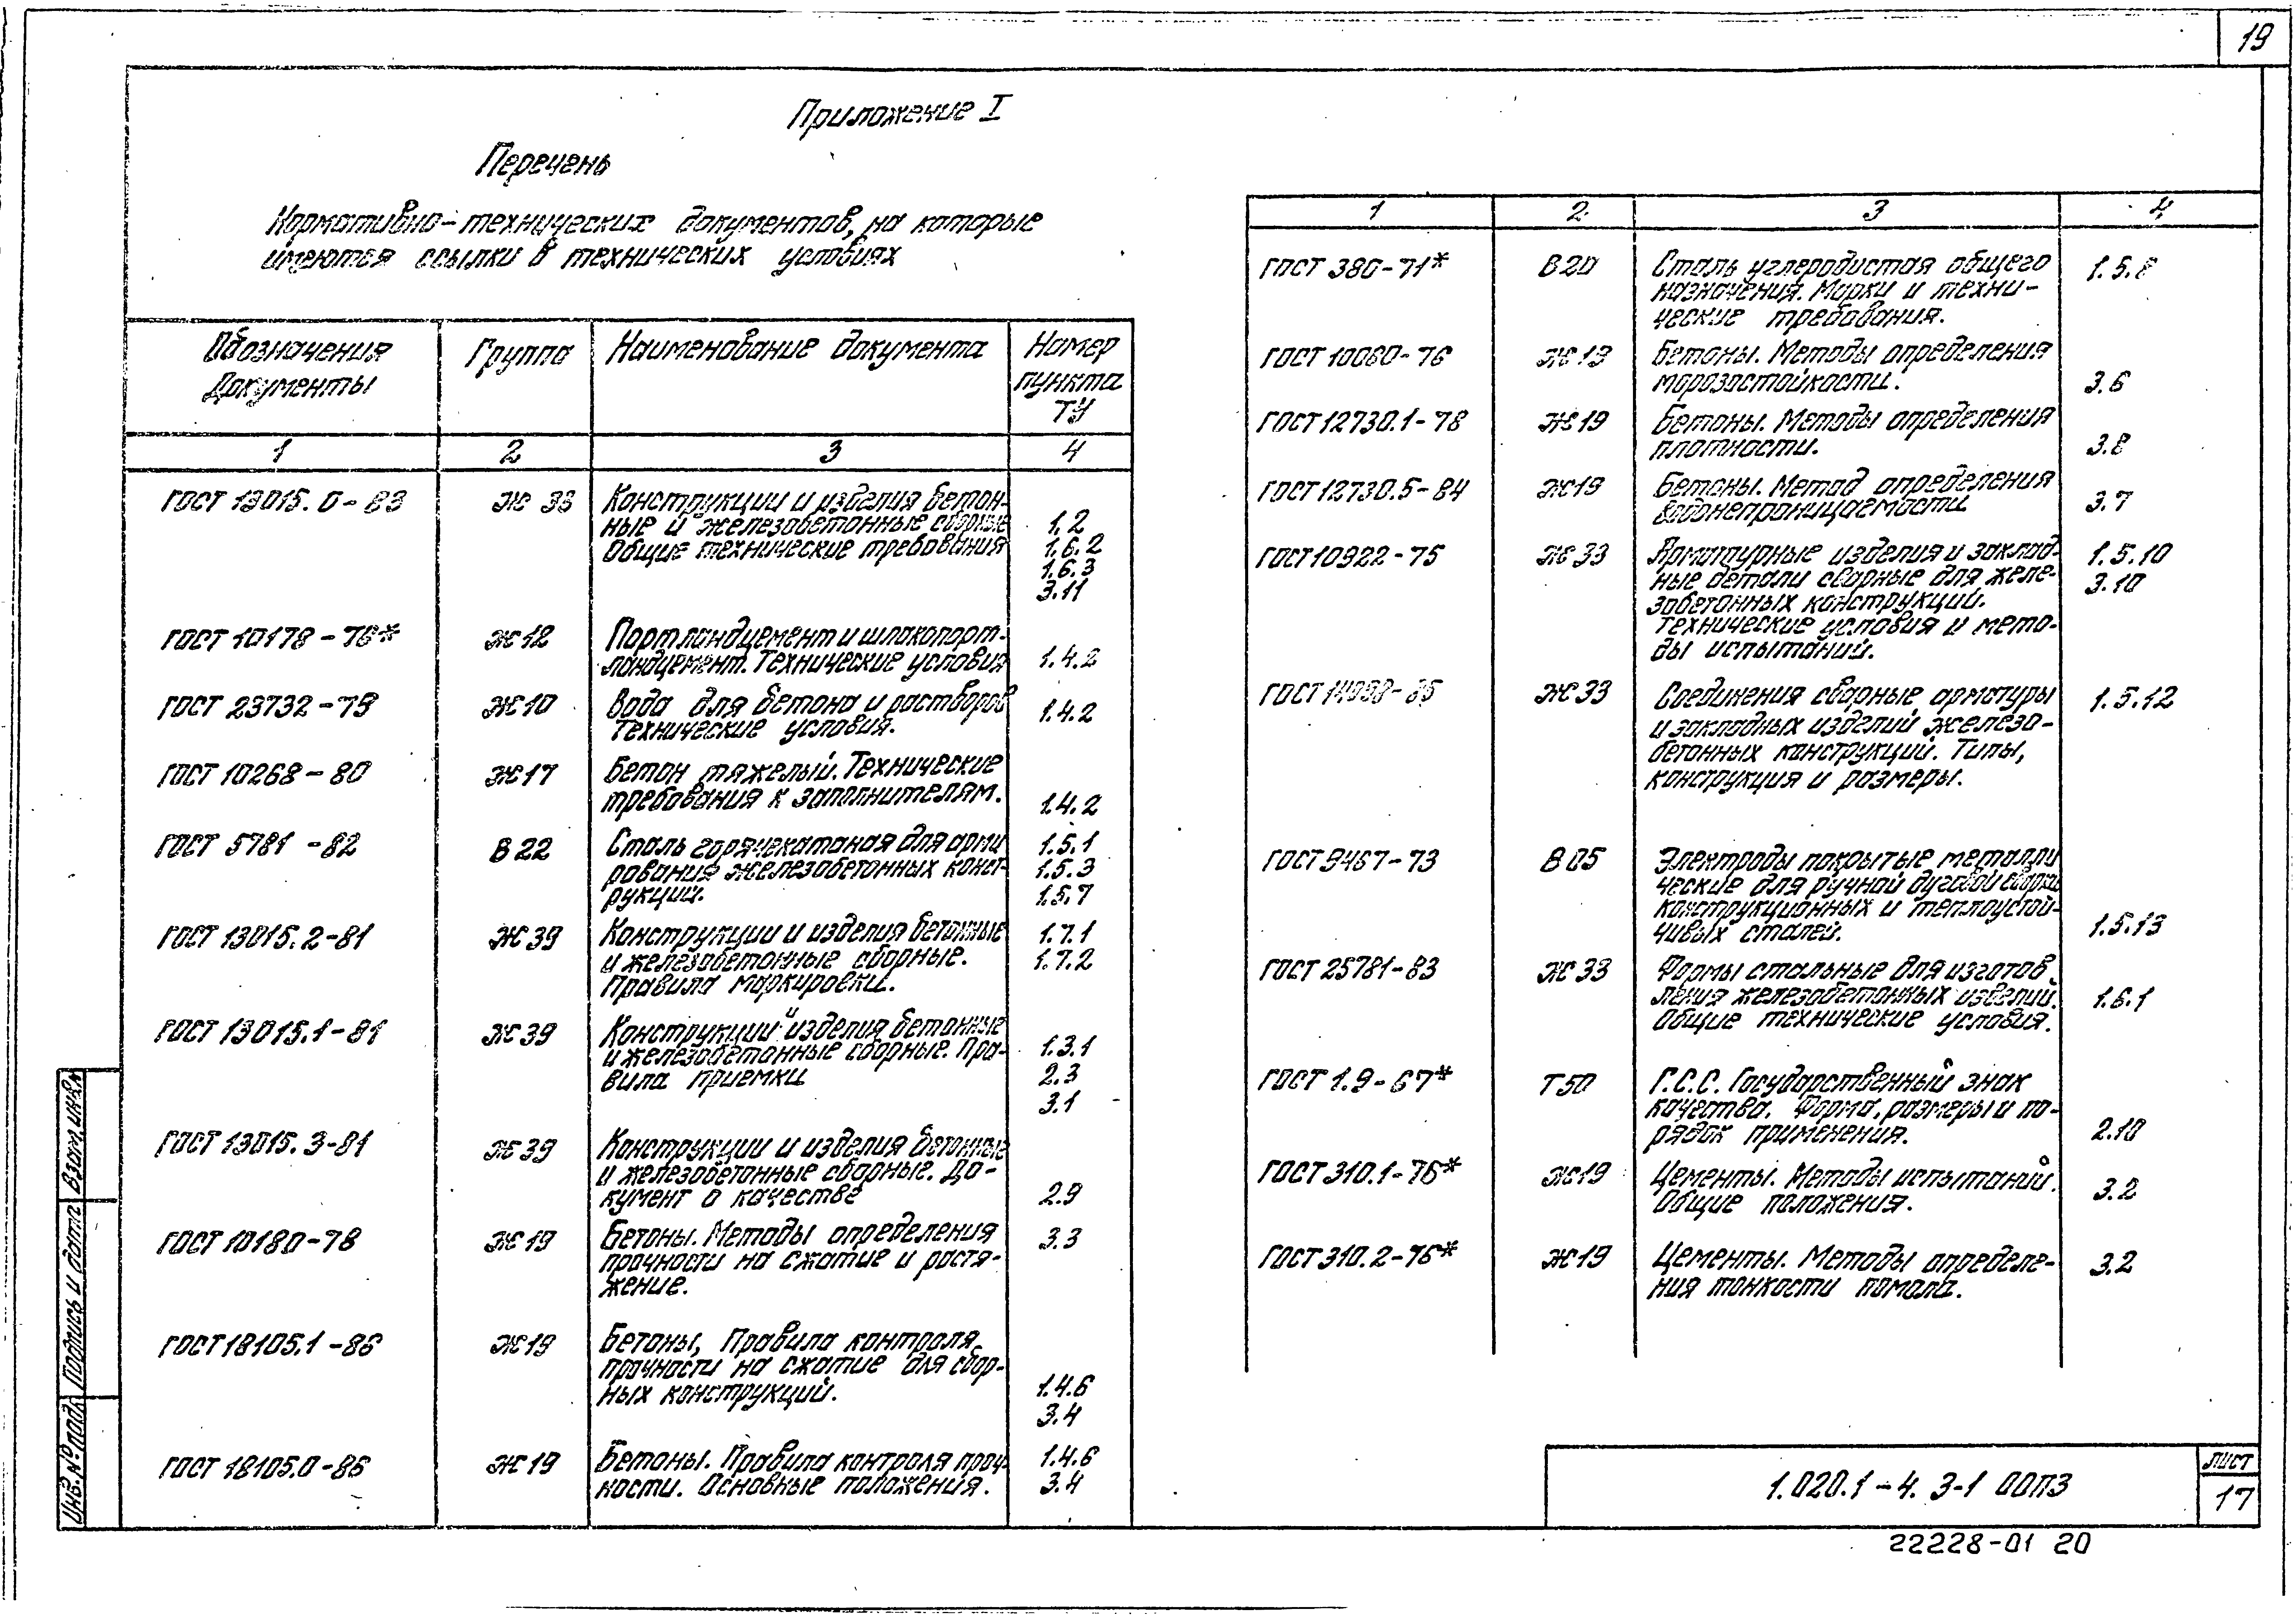 19
Приложение I
Перечень
Нормативно-технических документов, на которые
имеются ссылки в технических условиях
Обозначения Документы
Группа
Наименование документа
Номер пункта ТУ
1 2 3 4
ГОСТ 13015.0-83 Ж 33 Конструкции и изделия бетон-
ные и железобетонные сборные 1.2
Общие технические требования 1.6.2
1.6.3
3.11
ГОСТ 10178-76* Ж12 Портландцемент и шлакопорт-
ландцемент. Технические условия 1.4.2
ГОСТ 23732-79 Ж10 Вода для бетона и растворов
Технические условия. 1.4.2
ГОСТ 10268-80 Ж17 Бетон тяжелый. Технические
требования к заполнителям. 1.4.2
ГОСТ 5781-82 В 22 Сталь горячекатаная для арми 1.5.1
рования железобетонных конст- 1.5.3
рукций. 1.5.7
ГОСТ 13015.2-81 Ж39 Конструкции и изделия бетонные 1.7.1
и железобетонные сборные. 1.7.2
Правила маркировки.
ГОСТ 13015.1-81 Ж39 Конструкции и изделия бетонные
и железобетонные сборные. Пра- 1.3.1
вила приемки 2.3
3.1
ГОСТ 13015.3-81 Ж39 Конструкции и изделия бетонные
и железобетонные сборные. До-
кумент о качестве 2.9
ГОСТ 10180-78 Ж19 Бетоны. Методы определения 3.3
прочности на сжатие и растя-
жение.
ГОСТ 18105.1-86 Ж19 Бетоны, Правила контроля
прочности на сжатие для сбор-
ных конструкций. 1.4.6
3.4
ГОСТ 18105.0-86 Ж19 Бетоны. Правила контроля проч- 1.4.6
ности. Основные положения. 3.4
1 2 3 4
ГОСТ 380-71* В20 Сталь углеродистая общего 1.5.8
назначения. Марки и техни-
ческие требования.
ГОСТ 10060-76 Ж19 Бетоны. Методы определения
морозостойкости. 3.6
ГОСТ 12730.1-78 Ж19 Бетоны. Методы определения
плотности. 3.8
ГОСТ 12730.5-84 Ж19 Бетоны. Метод определения
водонепроницаемости 3.7
ГОСТ 10922-75 Ж33 Арматурные изделия и заклад- 1.5.10
ные детали сварные для желе- 3.10
зобетонных конструкций.
Технические условия и мето-
ды испытаний.
ГОСТ 14098-85 Ж33 Соединения сварные арматуры 1.5.12
и закладных изделий железо-
бетонных конструкций. Типы,
конструкция и размеры.
ГОСТ 9467-73 В 05 Электроды покрытые металли
ческие для ручной дуговой сварки
конструкционных и теплоустой-
чивых сталей. 1.5.13
ГОСТ 25781-83 Ж33 Формы стальные для изготов
ления железобетонных изделий. 1.6.1
Общие технические условия.
ГОСТ 1.9-67* Т50 Г.С.С. Государственный знак
качества. Форма, размеры и по-
рядок применения. 2.10
ГОСТ 310.1-76* Ж19 Цементы. Методы испытаний.
Общие положения. 3.2
ГОСТ 310.2-76* Ж19 Цементы. Методы определе- 3.2
ния тонкости помола.
Инв.№ подл. Подпись и дата Взам.инв.№
1.020.1-4. 3-1 00ПЗ
лист
17
22228-01 20